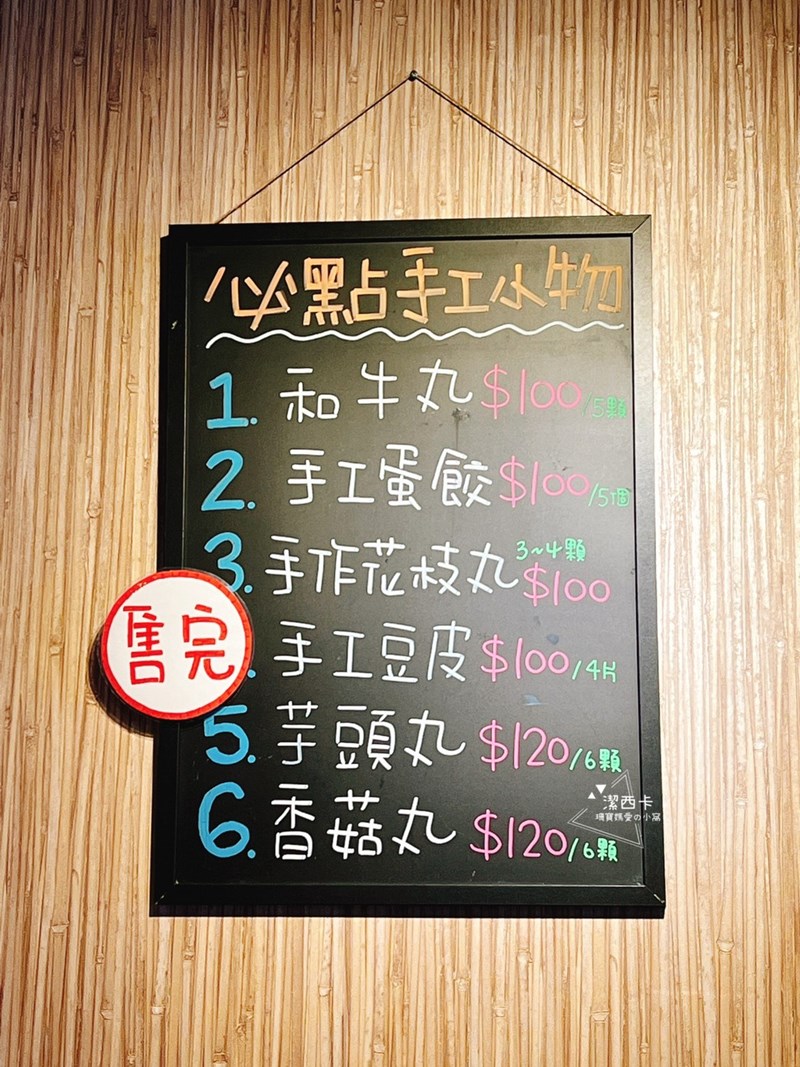 必點手工小物
1. 和牛丸$100/5顆
2. 手工蛋餃$100/5個
3. 手作花枝丸$100 3~4顆
售完
. 手工豆皮$100/4片
5. 芋頭丸$120/6顆
6. 香菇丸$120/6顆
潔西卡
珊寶媽愛の小窩